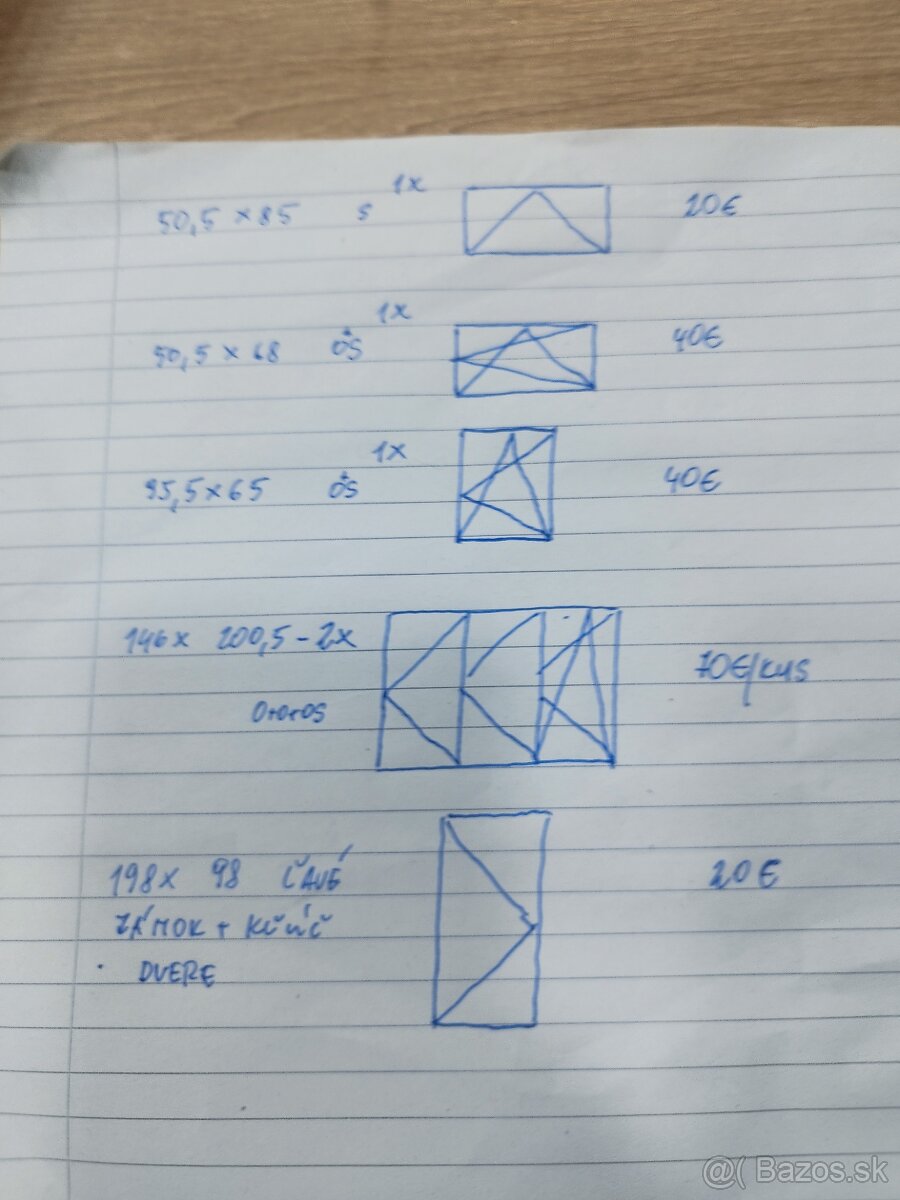 1x
50,5 × 85 S 20€
1x
50,5 × 68 OS 40€
1x
95,5×65 OS 40€
146x 200,5 - 2x
70€/KUS
O+O+OS
198x 98 ĽAVÉ 20€
ZÁMOK + KĽÚČ
DVERE
@( Bazos.sk